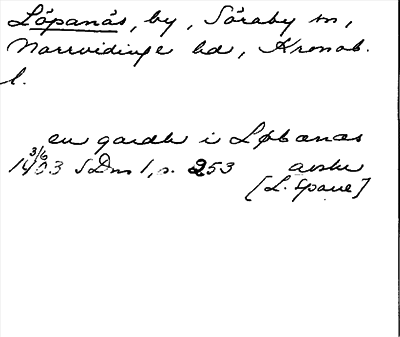 Löpanäs, by, Söraby sn,
Norrvidinge hd, Kronob.
l.
en gardh i Løbanæs
3/6
1403 SDns 1, s. 253 avskr
[L. Spane]